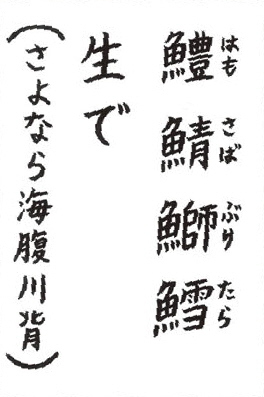 鱧鯖鰤鱈
はもさばぶりたら
生で
(さよなら海腹川背)